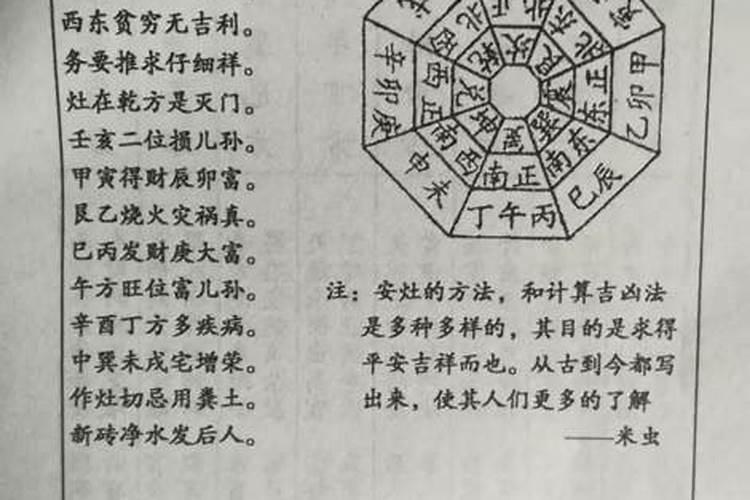 西东贫穷无吉利。
务要推求仔细祥。
灶在乾方是灭门。
壬亥二位损儿孙。
甲寅得财辰卯富。
艮乙烧火灾祸真。
巳丙发财庚大富。
午方旺位富儿孙。
辛酉丁方多疾病。
中巽未戌宅增荣。
作灶切忌用粪土。
新砖净水发后人。
北 正 北 东 北 寅
西 乾 坎 艮
辛卯庚 正西 兑 震 正东 甲卯乙
坤 离 巽
西南 正南 东南
申未 丁午丙 巳辰
注：安灶的方法，和计算吉凶法
是多种多样的，其目的是求得
平安吉祥而也。从古到今都写
出来，使其人们更多的了解
——米虫